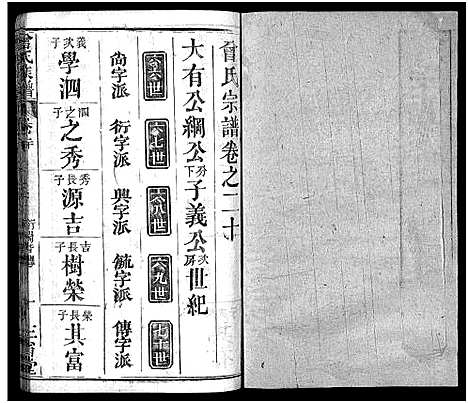 曾氏宗譜卷之二十
大有公綱公房下子義公次房世紀
六六世 六七世 六八世 六九世 七十世
尚字派 衍字派 興字派 毓字派 傳字派
義次子 學泗 泗之子 之秀 秀長子 源吉 吉長子 樹榮 榮長子 其富
曾氏族譜
三省堂